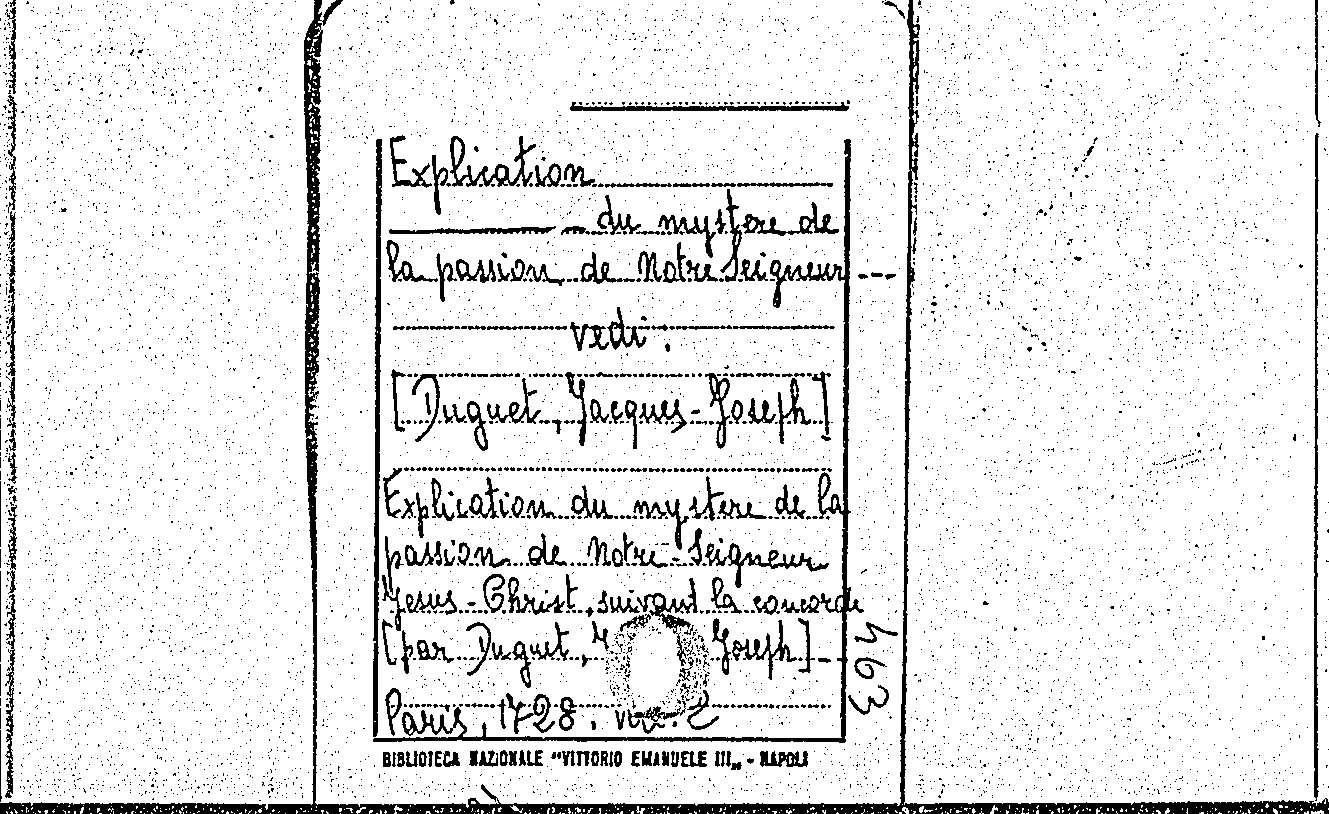 Explication
——— – du mystere de
la passion de Notre Seigneur ---
vedi:
[Duguet, Jacques-Joseph]
Explication du mystere de la
passion de Notre-Seigneur
Jesus-Christ, suivant la concorde
[par Duguet, J Joseph] ---
Paris, 1728. 
463
BIBLIOTECA NAZIONALE "VITTORIO EMANUELE III„ - NAPOLI